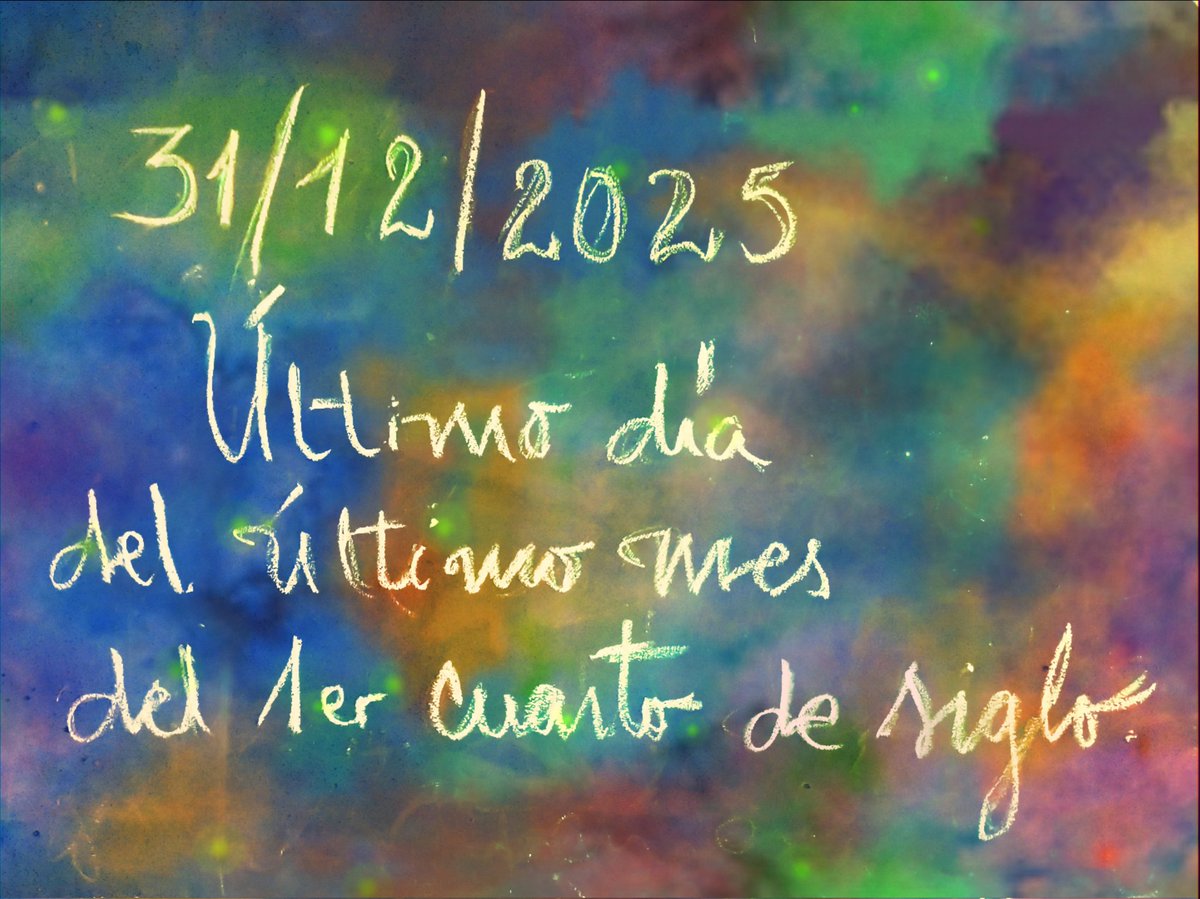 31/12/2025
Último día
del último mes
del 1er cuarto de siglo.